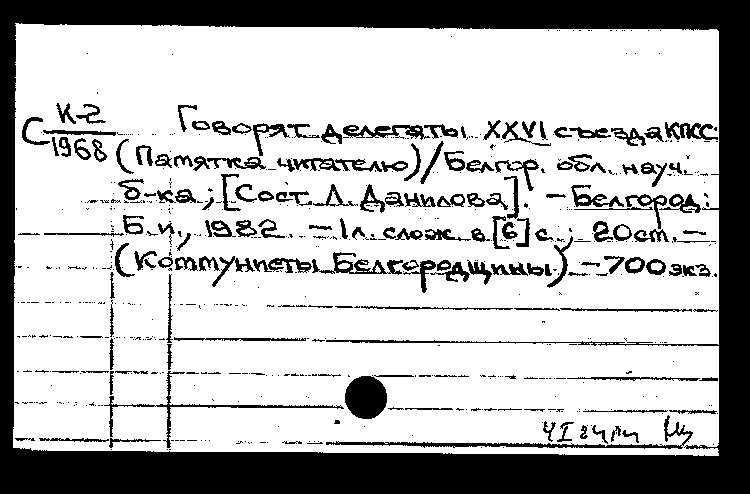 С К-2
1968
Говорят делегаты XXVI съезда КПСС:
(Памятка читателю)/Белгор. обл. науч.
б-ка; [Сост. Л. Данилова]. – Белгород:
Б.и., 1982. – 1л. слож. в [6] с.; 20см. –
(Коммунисты Белгородщины) – 700 экз.